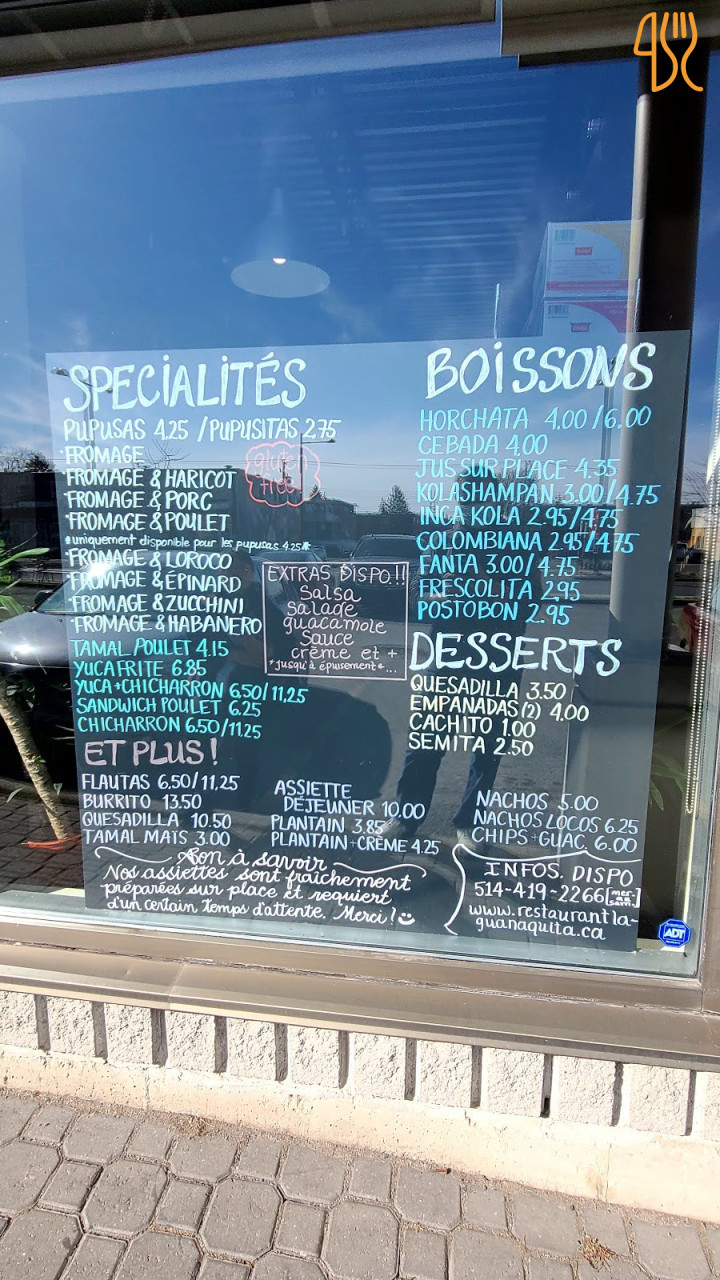 SPECIALITÉS
PUPUSAS 4.25 / PUPUSITAS 2.75
*FROMAGE
*FROMAGE & HARICOT
*FROMAGE & PORC
*FROMAGE & POULET
*uniquement disponible pour les pupusas 4.25*
*FROMAGE & LOROCO
*FROMAGE & ÉPINARD
*FROMAGE & ZUCCHINI
*FROMAGE & HABANERO
gluten
free
EXTRAS DISPO!!
Salsa
Salade
guacamole
Sauce
crème et +
*Jusqu'à épuisement*...
TAMAL POULET 4.15
YUCA FRITE 6.85
YUCA + CHICHARRON 6.50/11,25
SANDWICH POULET 6.25
CHICHARRON 6.50/11.25
BOISSONS
HORCHATA 4.00/6.00
CEBADA 4,00
JUS SUR PLACE 4.35
KOLASHAMPAN 3.00/4.75
INCA KOLA 2.95/4.75
COLOMBIANA 2.95/4.75
FANTA 3.00/4.75
FRESCOLITA 2,95
POSTOBON 2.95
DESSERTS
QUESADILLA 3.50
EMPANADAS (2) 4,00
CACHITO 1.00
SEMITA 2.50
ET PLUS!
FLAUTAS 6,50/11,25
BURRITO 13.50
QUESADILLA 10.50
TAMAL MAÏS 3.00
ASSIETTE
DÉJEUNER 10.00
PLANTAIN 3.85
PLANTAIN + CRÈME 4.25
NACHOS 5.00
NACHOS LOCOS 6.25
CHIPS + GUAC. 6.00
Bon à savoir
Nos assiettes sont fraîchement
préparées sur place et requiert
d'un certain temps d'attente. Merci!
INFOS. DISPO
514-419-2266 [mer.
au
sam.]
www.restaurantla-
guanaquita.ca
ADT